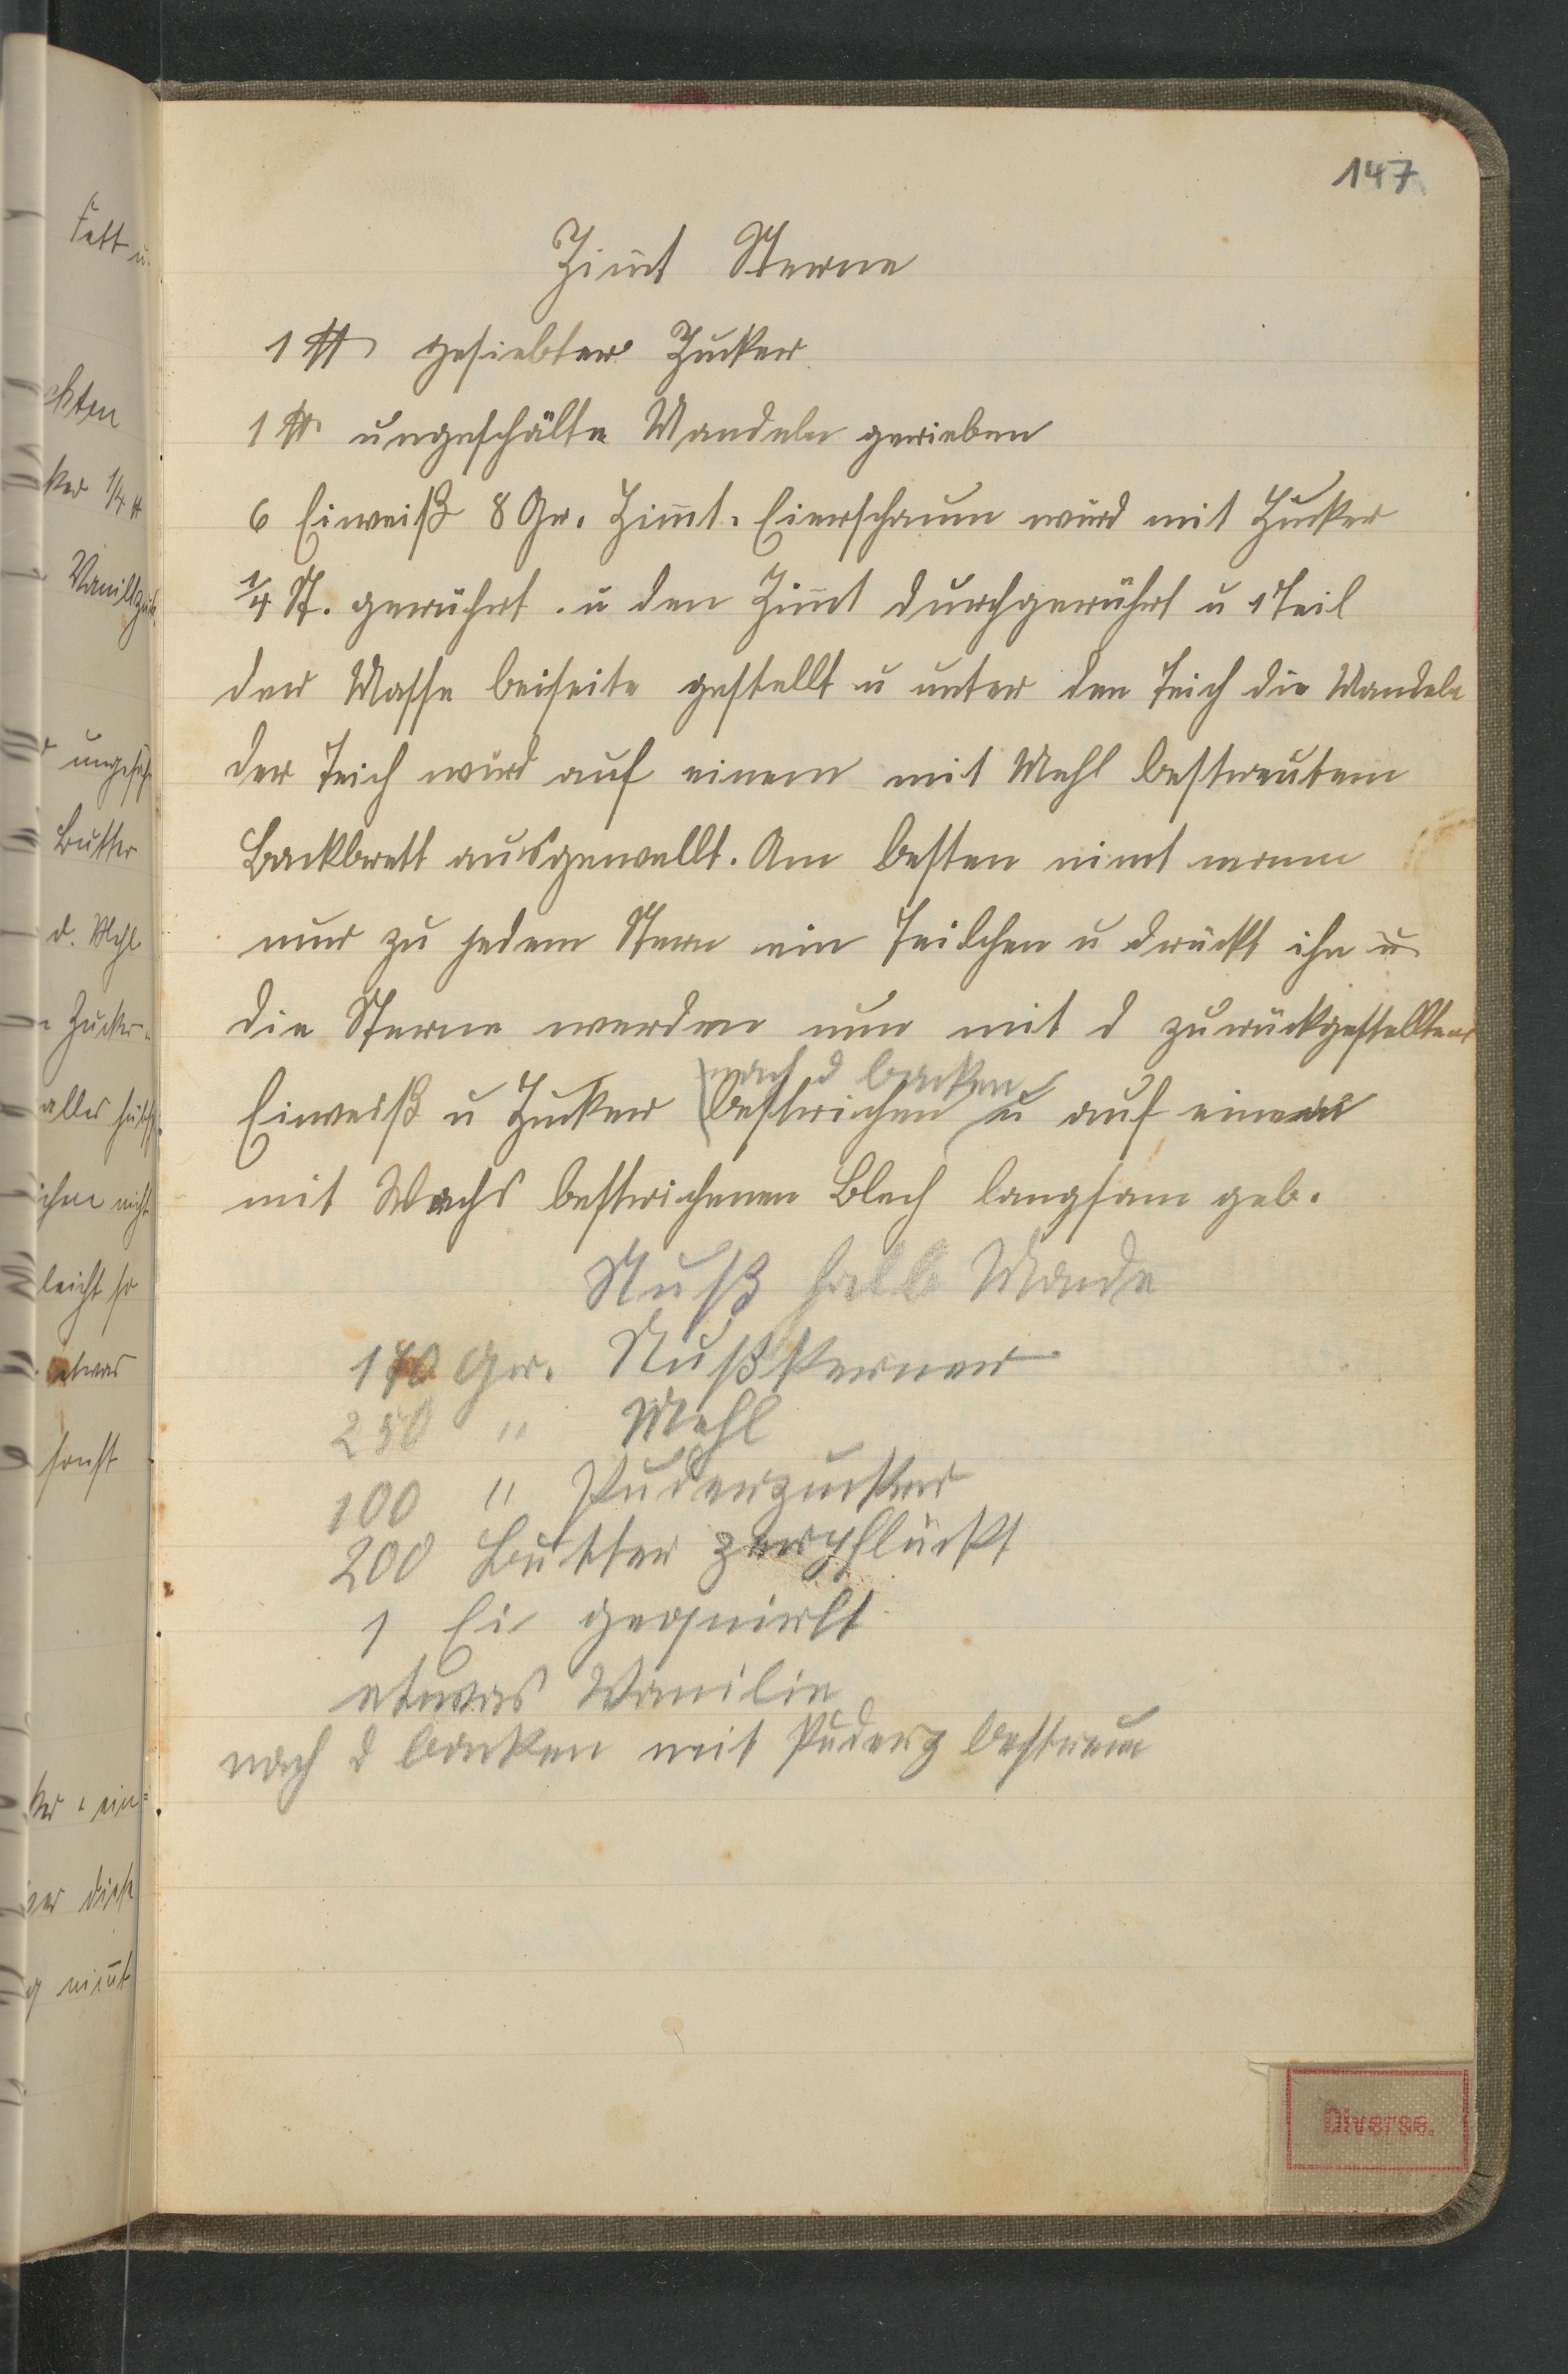 147
Zimt Sterne
1 ℔ gesiebter Zucker
1 ℔ ungeschälte Mandeln gerieben
6 Eiweiß 8 Gr. Zimt. Eierschaum wird mit Zucker
1/4 St. gerührt. u den Zimt durchgerührt u 1 Teil
der Masse beiseite gestellt u unter den Teich die Mandeln
der Teich wird auf einem mit Mehl bestreutem
Backbrett ausgewellt. Am besten nimt mann
nur zu jedem Stern ein Teilchen u drückt ihn u
die Sterne werden nun mit d zurückgestellten
nach d backen
Eiweiß u Zucker bestrichen u auf einem
mit Wachs bestrichenen Blech langsam geb.
Nuß halb Monde
170 Gr. Nußkerner
250 " Mehl
100 " Puderzucker
200 Butter zerpflückt
1 Ei gequirlt
etwas Vanilie
nach d backen mit Puderz bestreun
Diverse.
Fett u.
kten
ker 1/4 ℔
Butter
d. Mehl
Zucker
alles
nicht
leicht so
etwas
sonst
ker . ein=
diese
nimt